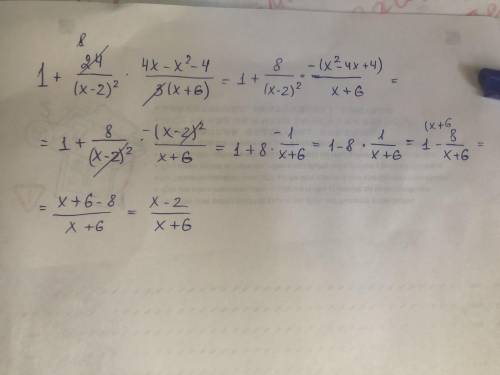 8
1 + 24/(x-2)² · (4x - x² - 4)/(3(x+6)) = 1 + 8/(x-2)² · (-(x² - 4x + 4))/(x+6) =
= 1 + 8/(x-2)² · (-(x-2)²)/(x+6) = 1 + 8 · (-1)/(x+6) = 1 - 8 · 1/(x+6) = (x+6 1 - 8/(x+6) =
= (x+6-8)/(x+6) = (x-2)/(x+6)